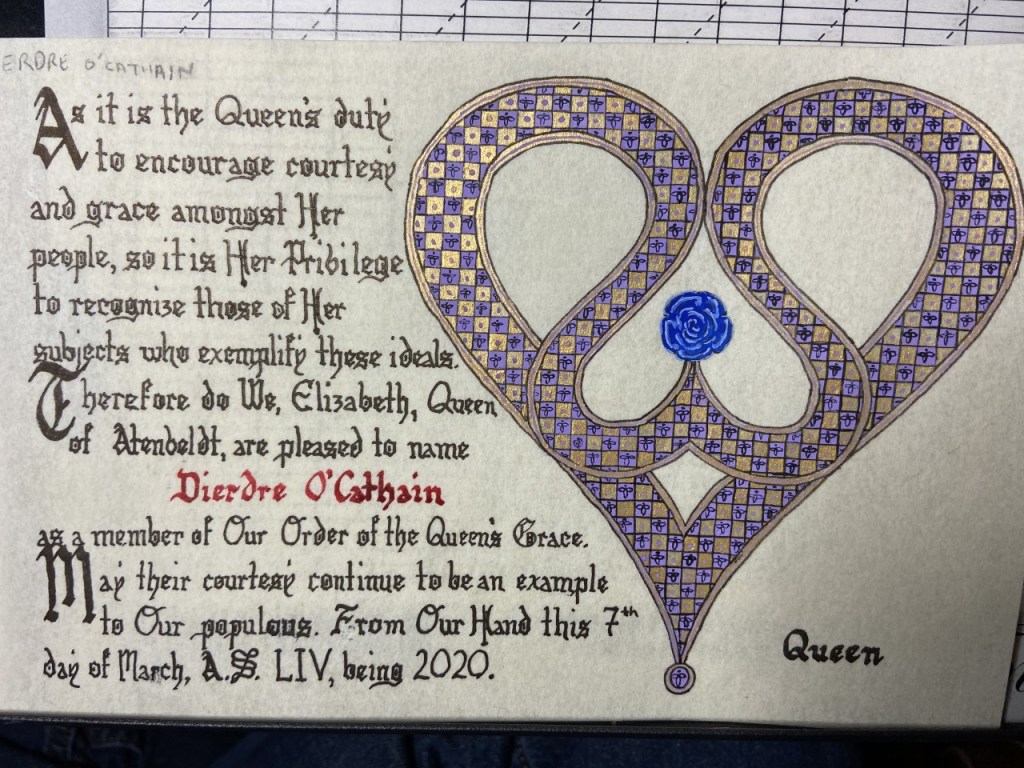 ERDRE O'CATHAIN
As it is the Queen's duty
to encourage courtesy
and grace amongst Her
people, so it is Her Pribilege
to recognize those of Her
subjects who exemplify these ideals.
Therefore do We, Elizabeth, Queen
of Atenbeldt, are pleased to name
Dierdre O'Cathain
as a member of Our Order of the Queen's Grace.
May their courtesy continue to be an example
to Our populous. From Our Hand this 7th
day of March, A.S. LIV, being 2020.
Queen